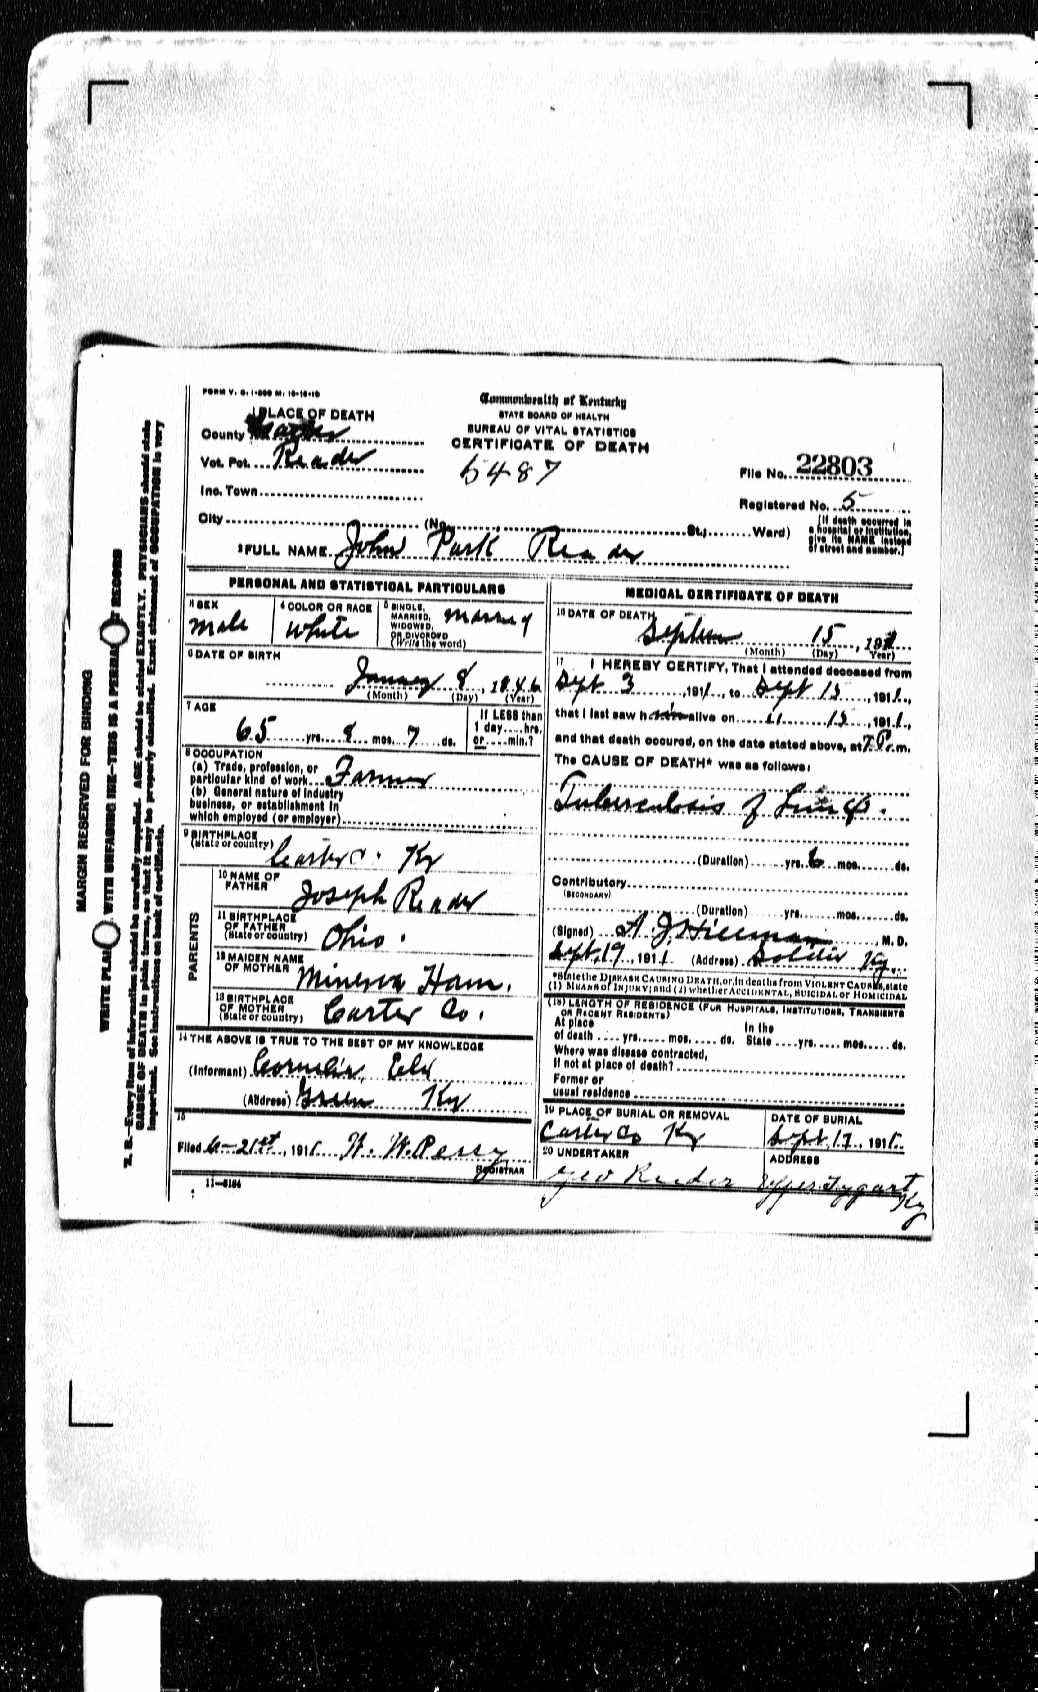 FORM V. S. 1-500 M. 10-16-10
1 PLACE OF DEATH
County Carter
Vot. Pct. Reader
Inc. Town
City (No. St.; Ward)
Commonwealth of Kentucky
STATE BOARD OF HEALTH
BUREAU OF VITAL STATISTICS
CERTIFICATE OF DEATH
5487
File No. 22803
Registered No. 5
[If death occurred in
a hospital or institution,
give its NAME instead
of street and number.]
2 FULL NAME John Park Reader
PERSONAL AND STATISTICAL PARTICULARS
3 SEX
Male
4 COLOR OR RACE
White
5 SINGLE,
MARRIED,
WIDOWED,
OR DIVORCED
(Write the word)
Married
6 DATE OF BIRTH
January 8, 1846
(Month) (Day) (Year)
7 AGE
65 yrs. 8 mos. 7 ds.
If LESS than
1 day.... hrs.
or.... min.?
8 OCCUPATION
(a) Trade, profession, or
particular kind of work Farmer
(b) General nature of industry
business, or establishment in
which employed (or employer)
9 BIRTHPLACE
(State or country) Carter Co. Ky
PARENTS
10 NAME OF
FATHER Joseph Reader
11 BIRTHPLACE
OF FATHER
(State or country) Ohio.
12 MAIDEN NAME
OF MOTHER Minerva Ham.
13 BIRTHPLACE
OF MOTHER
(State or country) Carter Co.
14 THE ABOVE IS TRUE TO THE BEST OF MY KNOWLEDGE
(Informant) Cornelia
(Address) Green Ky
15
Filed 6-21st, 1911 W. W. Perry
REGISTRAR
11-6184
MEDICAL CERTIFICATE OF DEATH
16 DATE OF DEATH
15, 1911
(Month) (Day) (Year)
17 I HEREBY CERTIFY, That I attended deceased from
Sept 3, 1911, to Sept 15, 1911,
that I last saw him alive on " 15, 1911,
and that death occured, on the date stated above, at 7 P. m.
The CAUSE OF DEATH* was as follows:
Tuberculosis of Lungs.
(Duration) yrs. 6 mos. ds.
Contributory
(SECONDARY)
(Duration) yrs. mos. ds.
(Signed) A. J. Hillman, M. D.
Sept. 19, 1911 (Address) Soldier Ky.
*State the DISEASE CAUSING DEATH, or, in deaths from VIOLENT CAUSES, state
(1) MEANS OF INJURY; and (2) whether ACCIDENTAL, SUICIDAL or HOMICIDAL
(18) LENGTH OF RESIDENCE (FOR HOSPITALS, INSTITUTIONS, TRANSIENTS
OR RECENT RESIDENTS)
At place In the
of death .... yrs. .... mos. .... ds. State .... yrs. .... mos. .... ds.
Where was disease contracted,
If not at place of death?
Former or
usual residence
19 PLACE OF BURIAL OR REMOVAL
Carter Co Ky
DATE OF BURIAL
Sept. 17, 1911.
20 UNDERTAKER
Geo Reeder
ADDRESS
Upper Tygart
Ky
MARGIN RESERVED FOR BINDING
WRITE PLAINLY WITH UNFADING INK—THIS IS A PERMANENT RECORD
N. B.—Every item of information should be carefully supplied. AGE should be stated EXACTLY. PHYSICIANS should state
CAUSE OF DEATH in plain terms, so that it may be properly classified. Exact statement of OCCUPATION is very
important. See instructions on back of certificate.